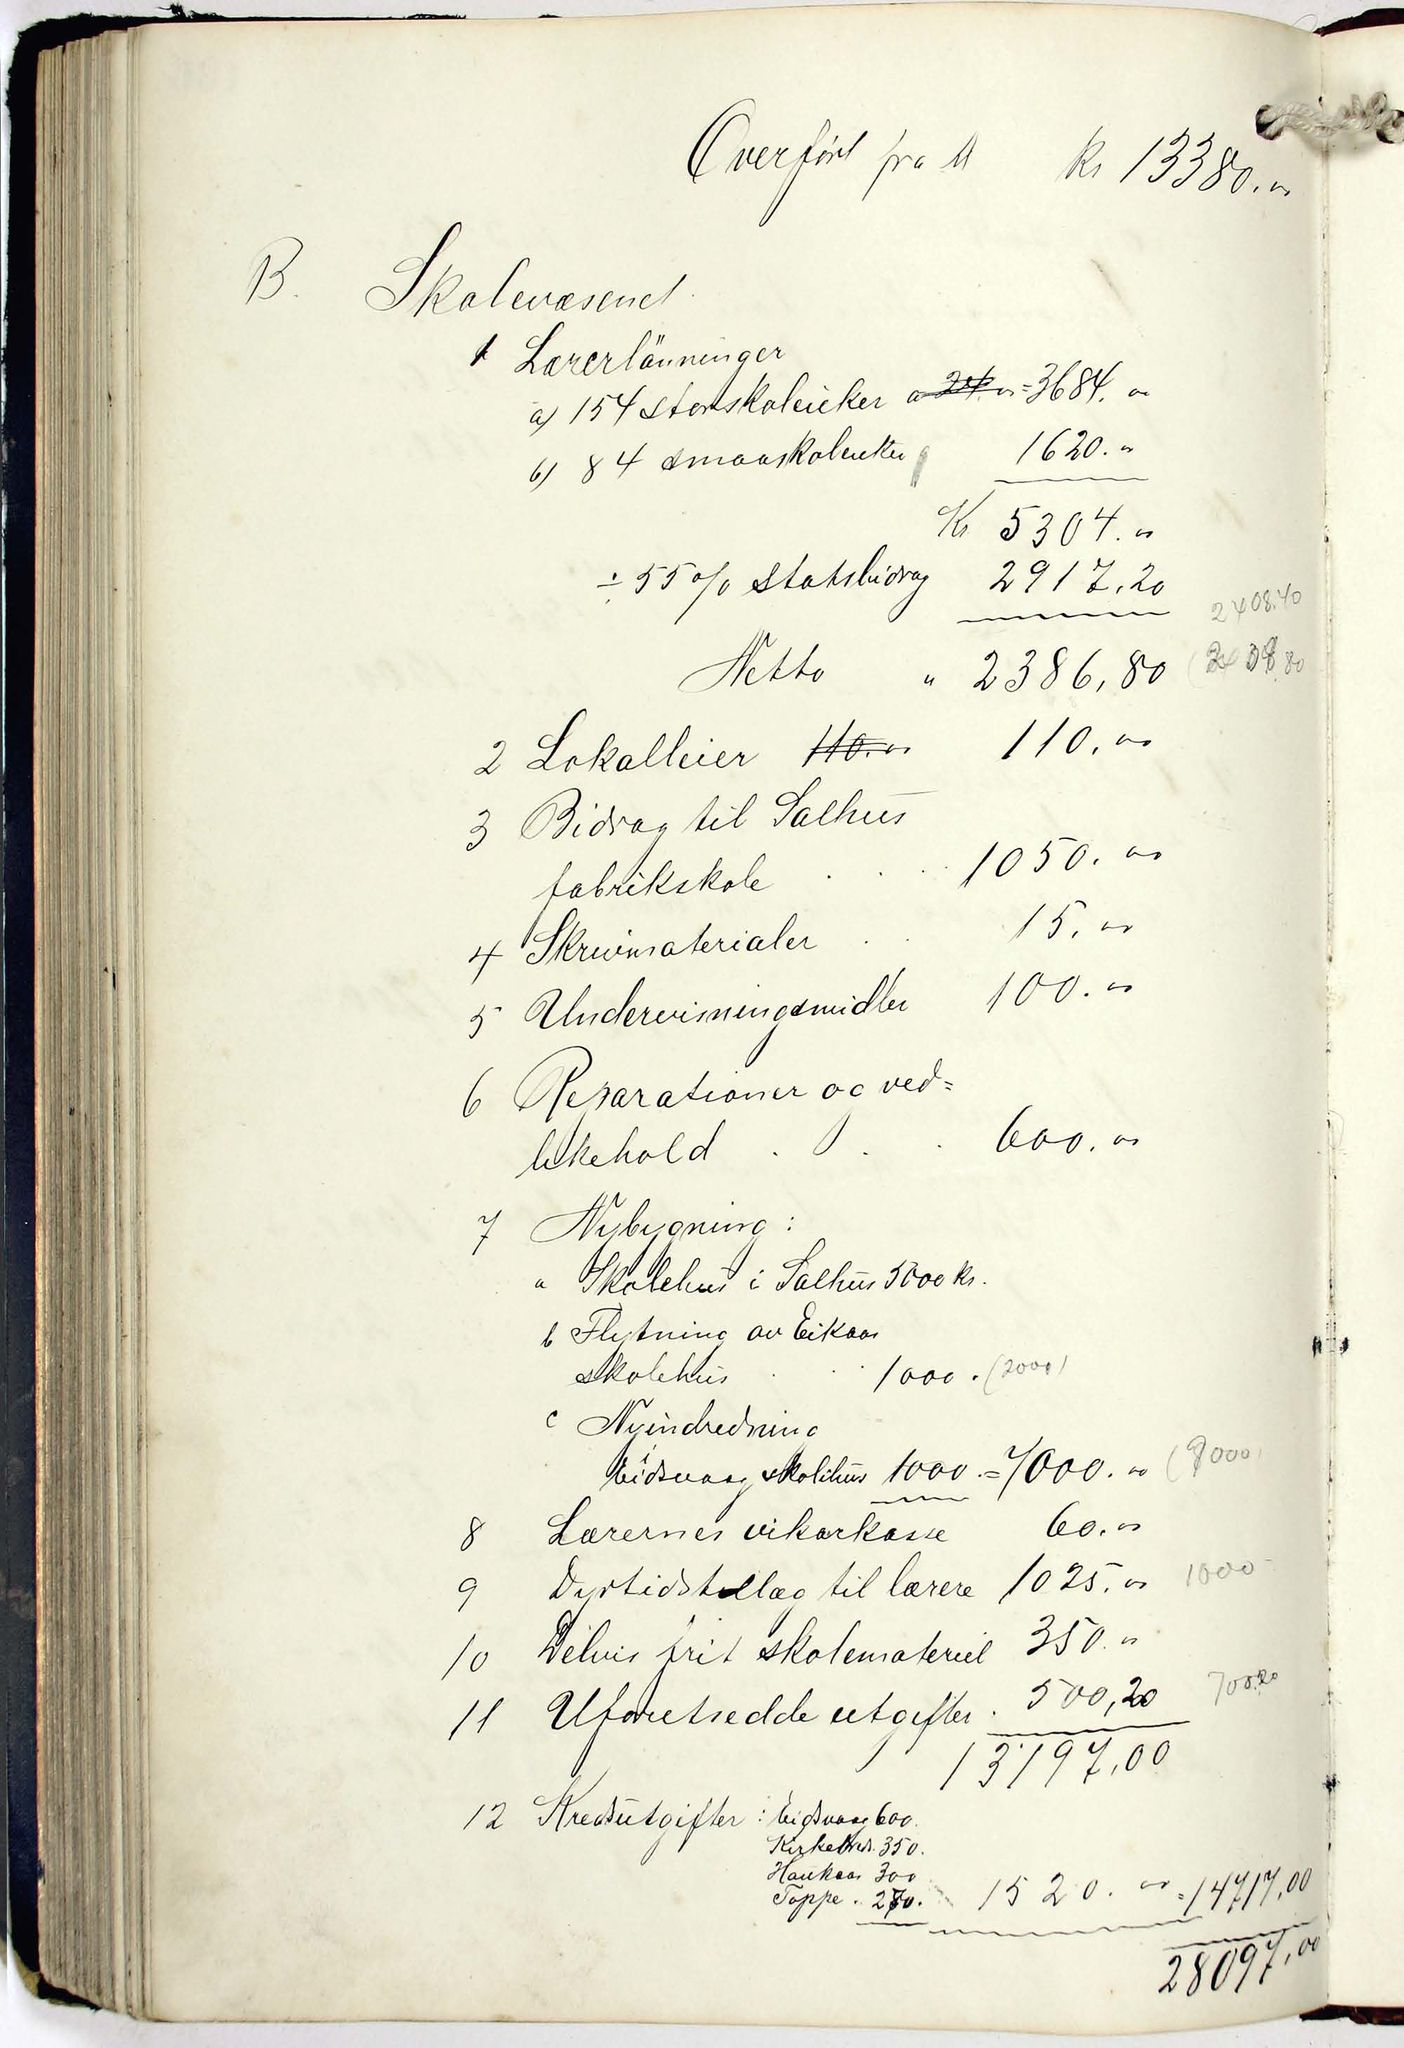 Overført fra A kr 13380.00
B. Skolevæsenet.
1 Lærerlönninger
a) 154 storskoleuker a 24.00 = 3684.00
b) 84 smaaskoleuker 1620.00
Kr 5304.00
÷ 55% statsbidrag 2917,20
2408.40
Netto " 2386,80
2 Lokalleier 110.00 110.00
3 Bidrag til Salhus
fabrikskole . . . 1050.00
4 Skrivmaterialer . . 15.00
5 Undervisningsmidler 100.00
6 Reparationer og ved=
likehold . . . 600.00
7 Nybygning:
a Skolehus i Salhus 5000 kr.
b Flytning av Eikaas
skolehus . . 1000. (2000)
c Nyindredning
Eidsvaag skolehus 1000. = 7000.00 (8000)
8 Lærernes vikarkasse 60.00
9 Dyrtidstillæg til lærere 1025.00 1000
10 Delvis frit skolemateriel 350.00
11 Uforutsedde utgifter . 500,20 700.20
13197,00
12 Kredsutgifter: Eidsvaag 600.
Kirkekred. 350.
Haukaas 300
Toppe . 270. 1520.00 = 14717,00
28097,00